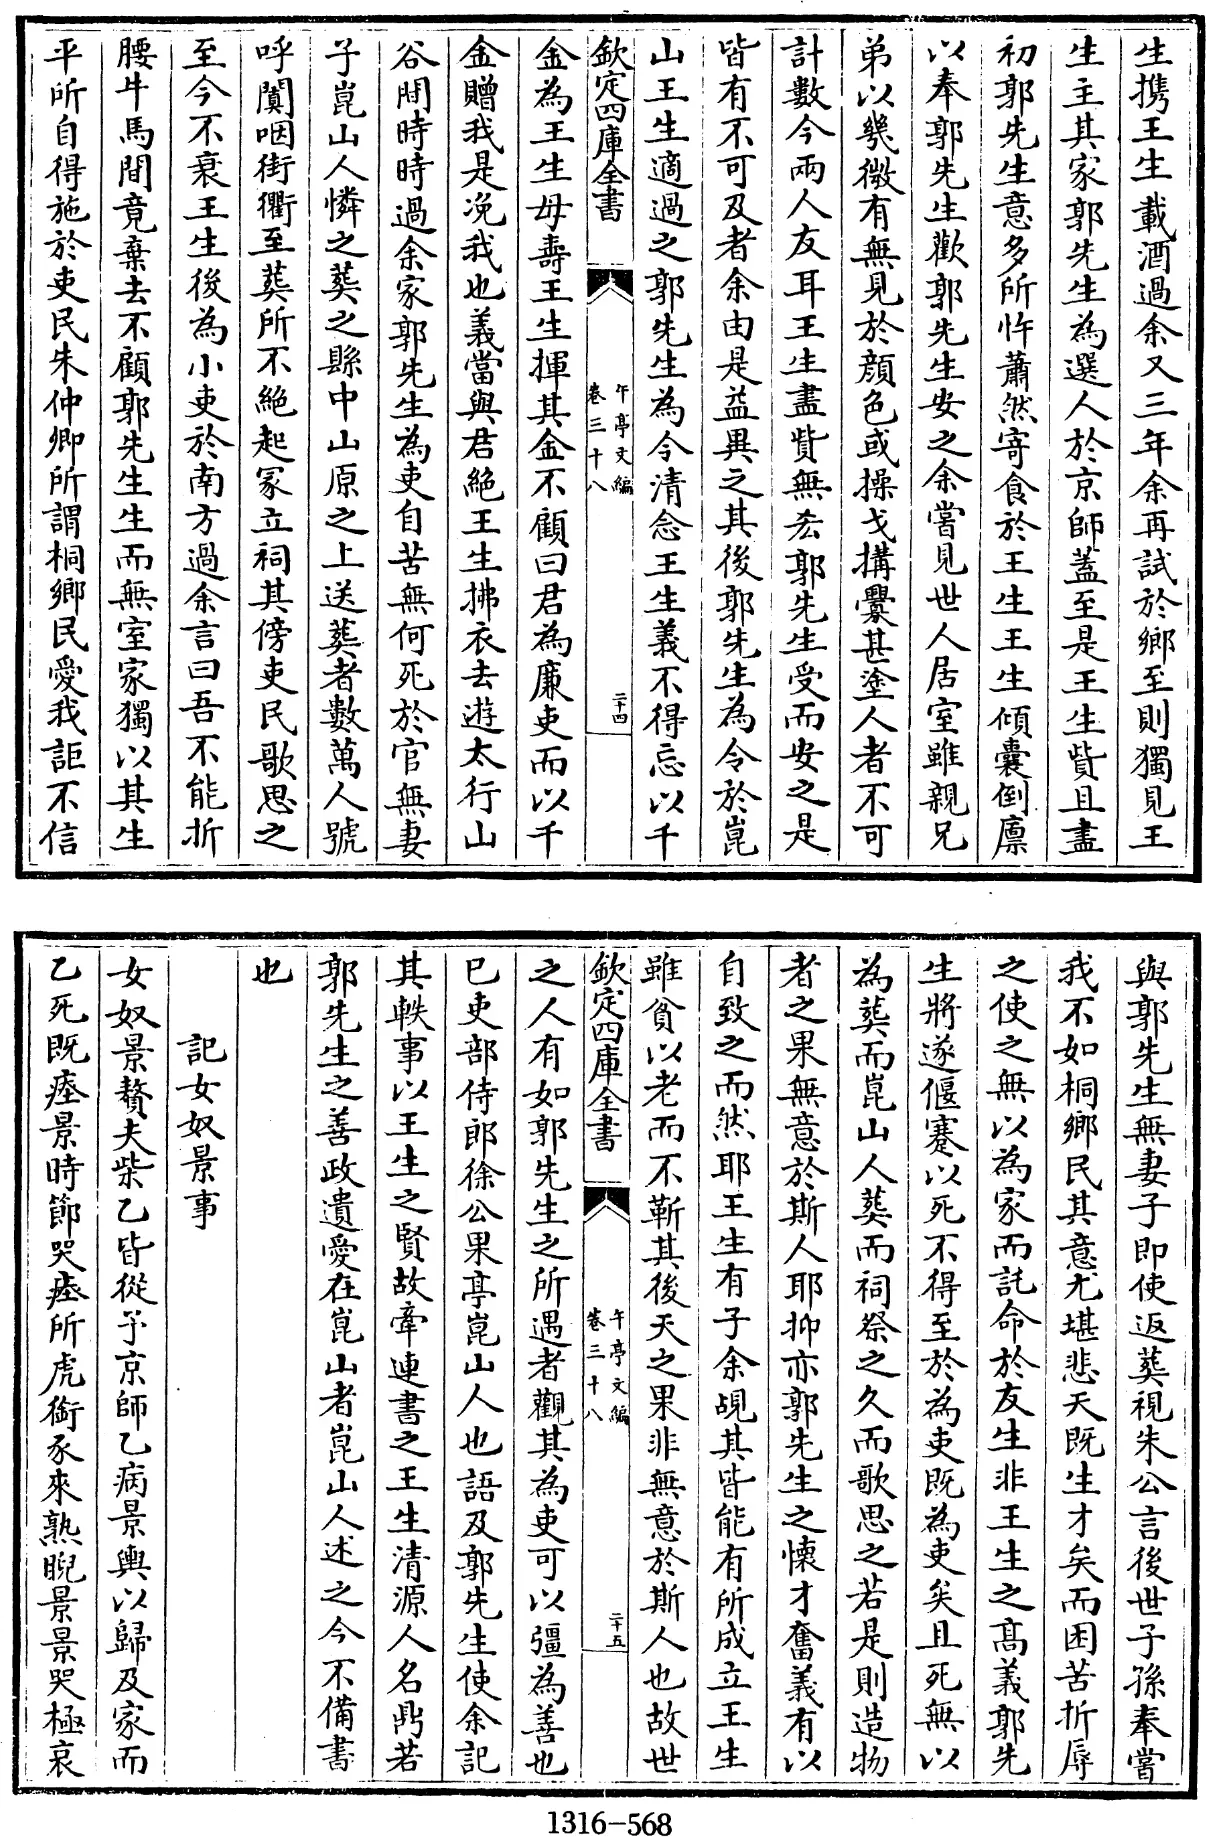 生携王生載酒過余又三年余再試於鄉至則獨見王
生主其家郭先生為選人於京師蓋至是王生貲且盡
初郭先生意多所忤蕭然寄食於王生王生傾囊倒廩
以奉郭先生歡郭先生安之余嘗見世人居室雖親兄
弟以幾微有無見於顔色或操戈搆釁甚塗人者不可
計數今兩人友耳王生盡貲無宏郭先生受而安之是
皆有不可及者余由是益異之其後郭先生為令於崑
山王生適過之郭先生為令清念王生義不得忘以千
欽定四庫全書
午亭文編
卷三十八
二十四
金為王生母壽王生揮其金不顧曰君為廉吏而以千
金贈我是浼我也義當與君絶王生拂衣去遊太行山
谷間時時過余家郭先生為吏自苦無何死於官無妻
子崑山人憐之葬之縣中山原之上送葬者數萬人號
呼闐咽街衢至葬所不絶起冢立祠其傍吏民歌思之
至今不衰王生後為小吏於南方過余言曰吾不能折
腰牛馬間竟棄去不顧郭先生生而無室家獨以其生
平所自得施於吏民朱仲卿所謂桐鄉民愛我詎不信
與郭先生無妻子即使返葬視朱公言後世子孫奉嘗
我不如桐鄉民其意尤堪悲天既生才矣而困苦折辱
之使之無以為家而託命於友生非王生之髙義郭先
生將遂偃蹇以死不得至於為吏既為吏矣且死無以
為葬而崑山人葬而祠祭之久而歌思之若是則造物
者之果無意於斯人耶抑亦郭先生之懐才奮義有以
自致之而然耶王生有子余覘其皆能有所成立王生
雖貧以老而不靳其後天之果非無意於斯人也故世
欽定四庫全書
午亭文編
卷三十八
二十五
之人有如郭先生之所遇者觀其為吏可以彊為善也
已吏部侍郎徐公果亭崑山人也語及郭先生使余記
其軼事以王生之賢故牽連書之王生清源人名鼎若
郭先生之善政遺愛在崑山者崑山人述之今不備書
也
記女奴景事
女奴景贅夫柴乙皆從予京師乙病景輿以歸及家而
乙死既瘞景時節哭瘞所虎銜豕來熟睨景景哭極哀
1316-568